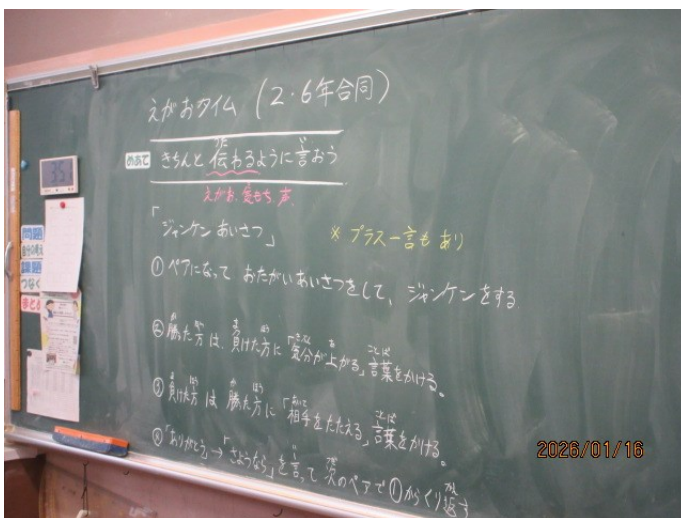 えがおタイム (2・6年合同)
めあて きちんと伝わるように言おう
えがお、気もち、声
「ジャンケンあいさつ」 ※プラス一言もあり
①ペアになって おたがいあいさつをして、ジャンケンをする
②勝った方は、負けた方に「気分が上がる」言葉をかける。
③負けた方は 勝った方に「相手をたたえる」言葉をかける。
「ありがとう」→「さようなら」を言って 次のペアで①からくり返す
問題
自分の考え
課題
つなぐ
まとめ
2026/01/16